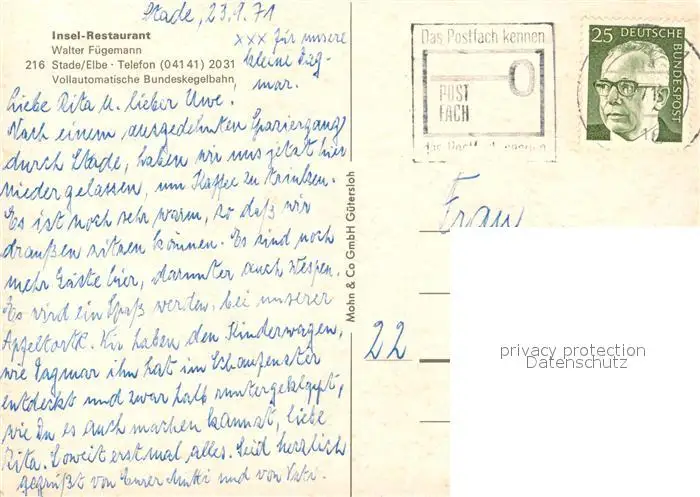 Stade, 23.9.71
Insel-Restaurant
Walter Fügemann
216 Stade/Elbe · Telefon (04141) 2031
Vollautomatische Bundeskegelbahn
xxx für unsere
kleine Dag-
mar.
Liebe Rita u. lieber Uwe.
Nach einem ausgedehnten Spaziergang
durch Stade, haben wir uns jetzt hier
nieder gelassen, um Kaffee zu trinken.
Es ist noch sehr warm, so daß wir
draußen sitzen können. Es sind noch
mehr Gäste hier, darunter auch Wespen.
Es wird ein Spaß werden, bei unserer
Apfeltorte. Wir haben den Kinderwagen,
wie Dagmar ihn hat im Schaufenster
entdeckt und zwar halb runtergeklappt,
wie Du es auch machen kannst, liebe
Rita. Soweit erst mal alles. Seid herzlich
gegrüßt von Eurer Mutti und von Vati.
Mohn & Co GmbH Gütersloh
Das Postfach kennen
POST
FACH
25 DEUTSCHE
BUNDESPOST
Frau
22
privacy protection
Datenschutz